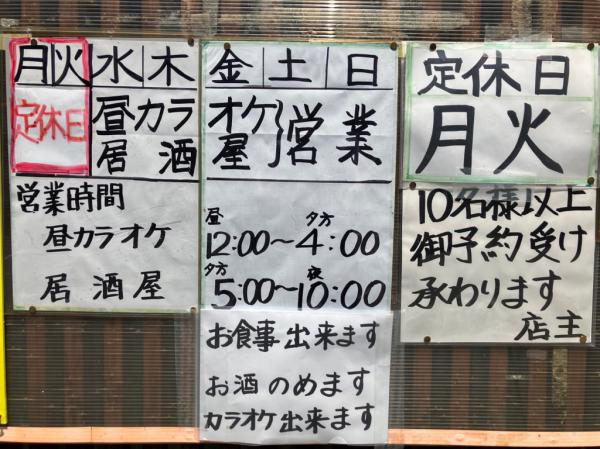 月火水木金土日
定休日
昼カラオケ営業
居酒屋
営業時間
昼カラオケ 昼12:00〜夕方4:00
居酒屋 夕方5:00〜夜10:00
お食事出来ます
お酒のめます
カラオケ出来ます
定休日
月火
10名様以上
御予約受け
承わります
店主